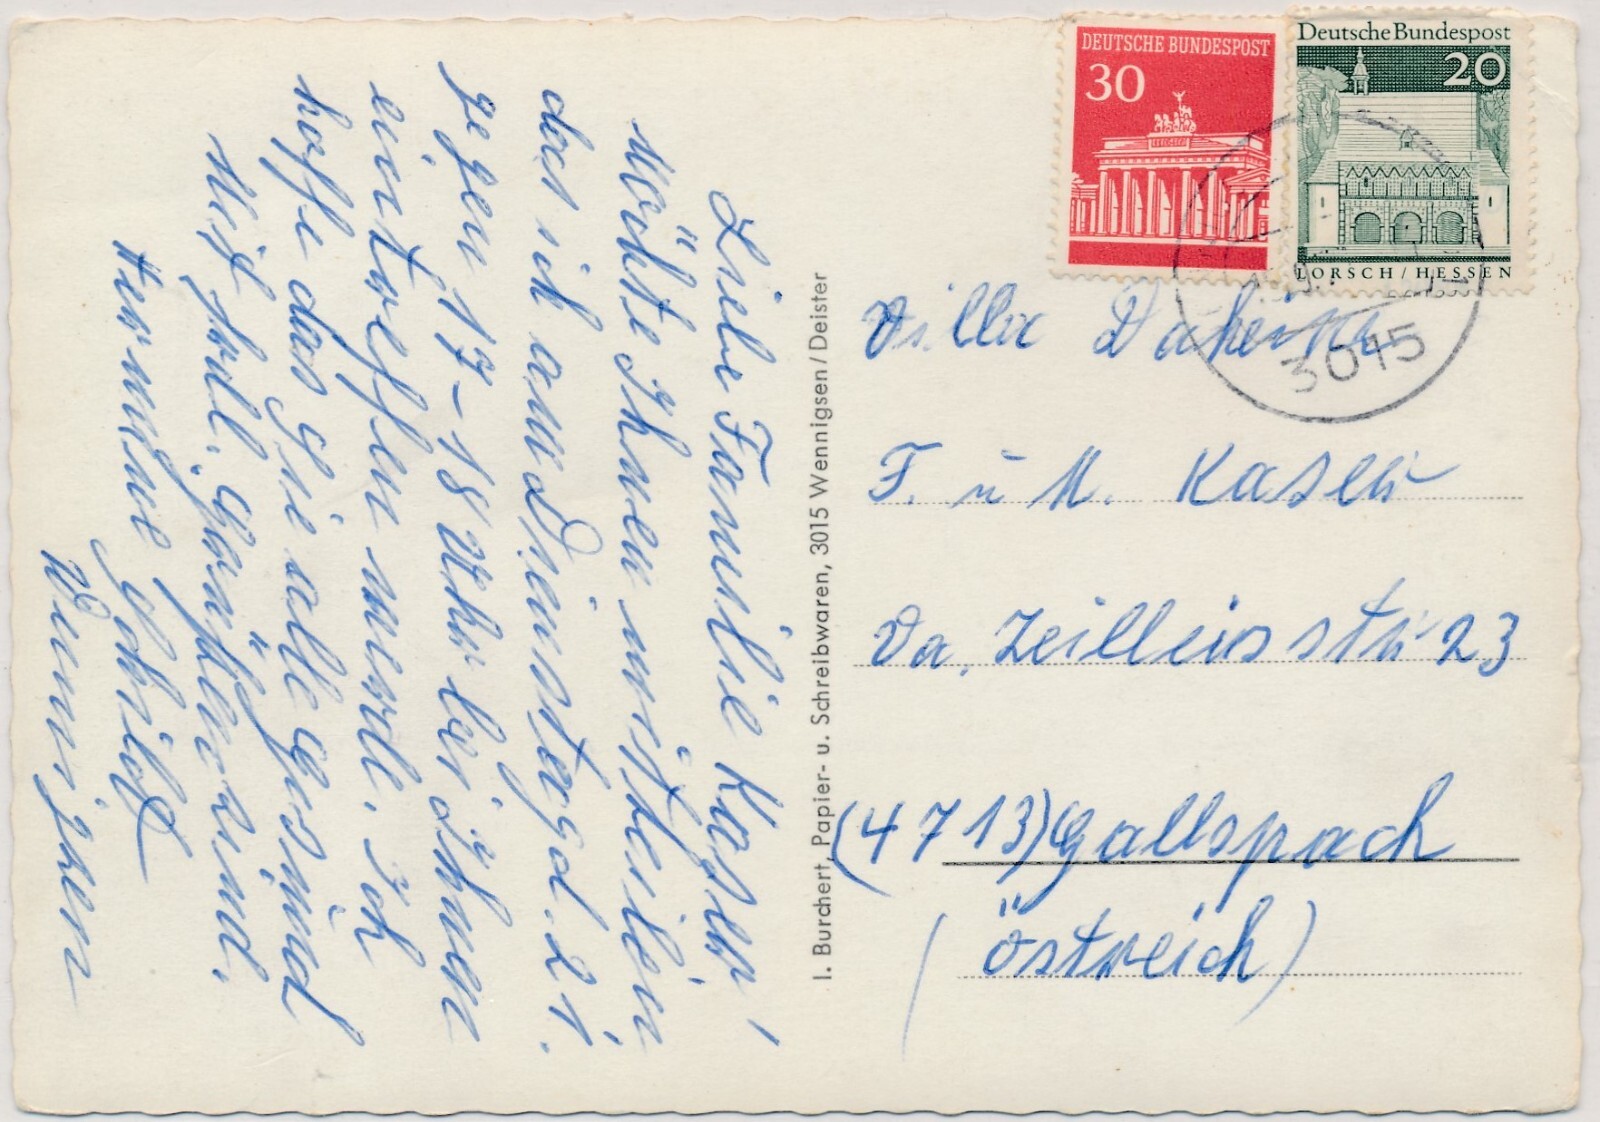 Liebe Familie Kaser!
Möchte Ihnen mitteilen
das ich am Dienstag d. 21.
gegen 17-18 Uhr bei Ihnen
eintreffen werde. Ich
hoffe das Sie alle Gesund
Mit frdl. Grüßen
Hermine
I. Burchert, Papier- u. Schreibwaren, 3015 Wennigsen/Deister
DEUTSCHE BUNDESPOST
30
Deutsche Bundespost
20
LORSCH/HESSEN
3015
Villa Daheim
F. u M. Kaser
Dr. Zeilleisstr 23
(4713) Gallspach
(Östreich)